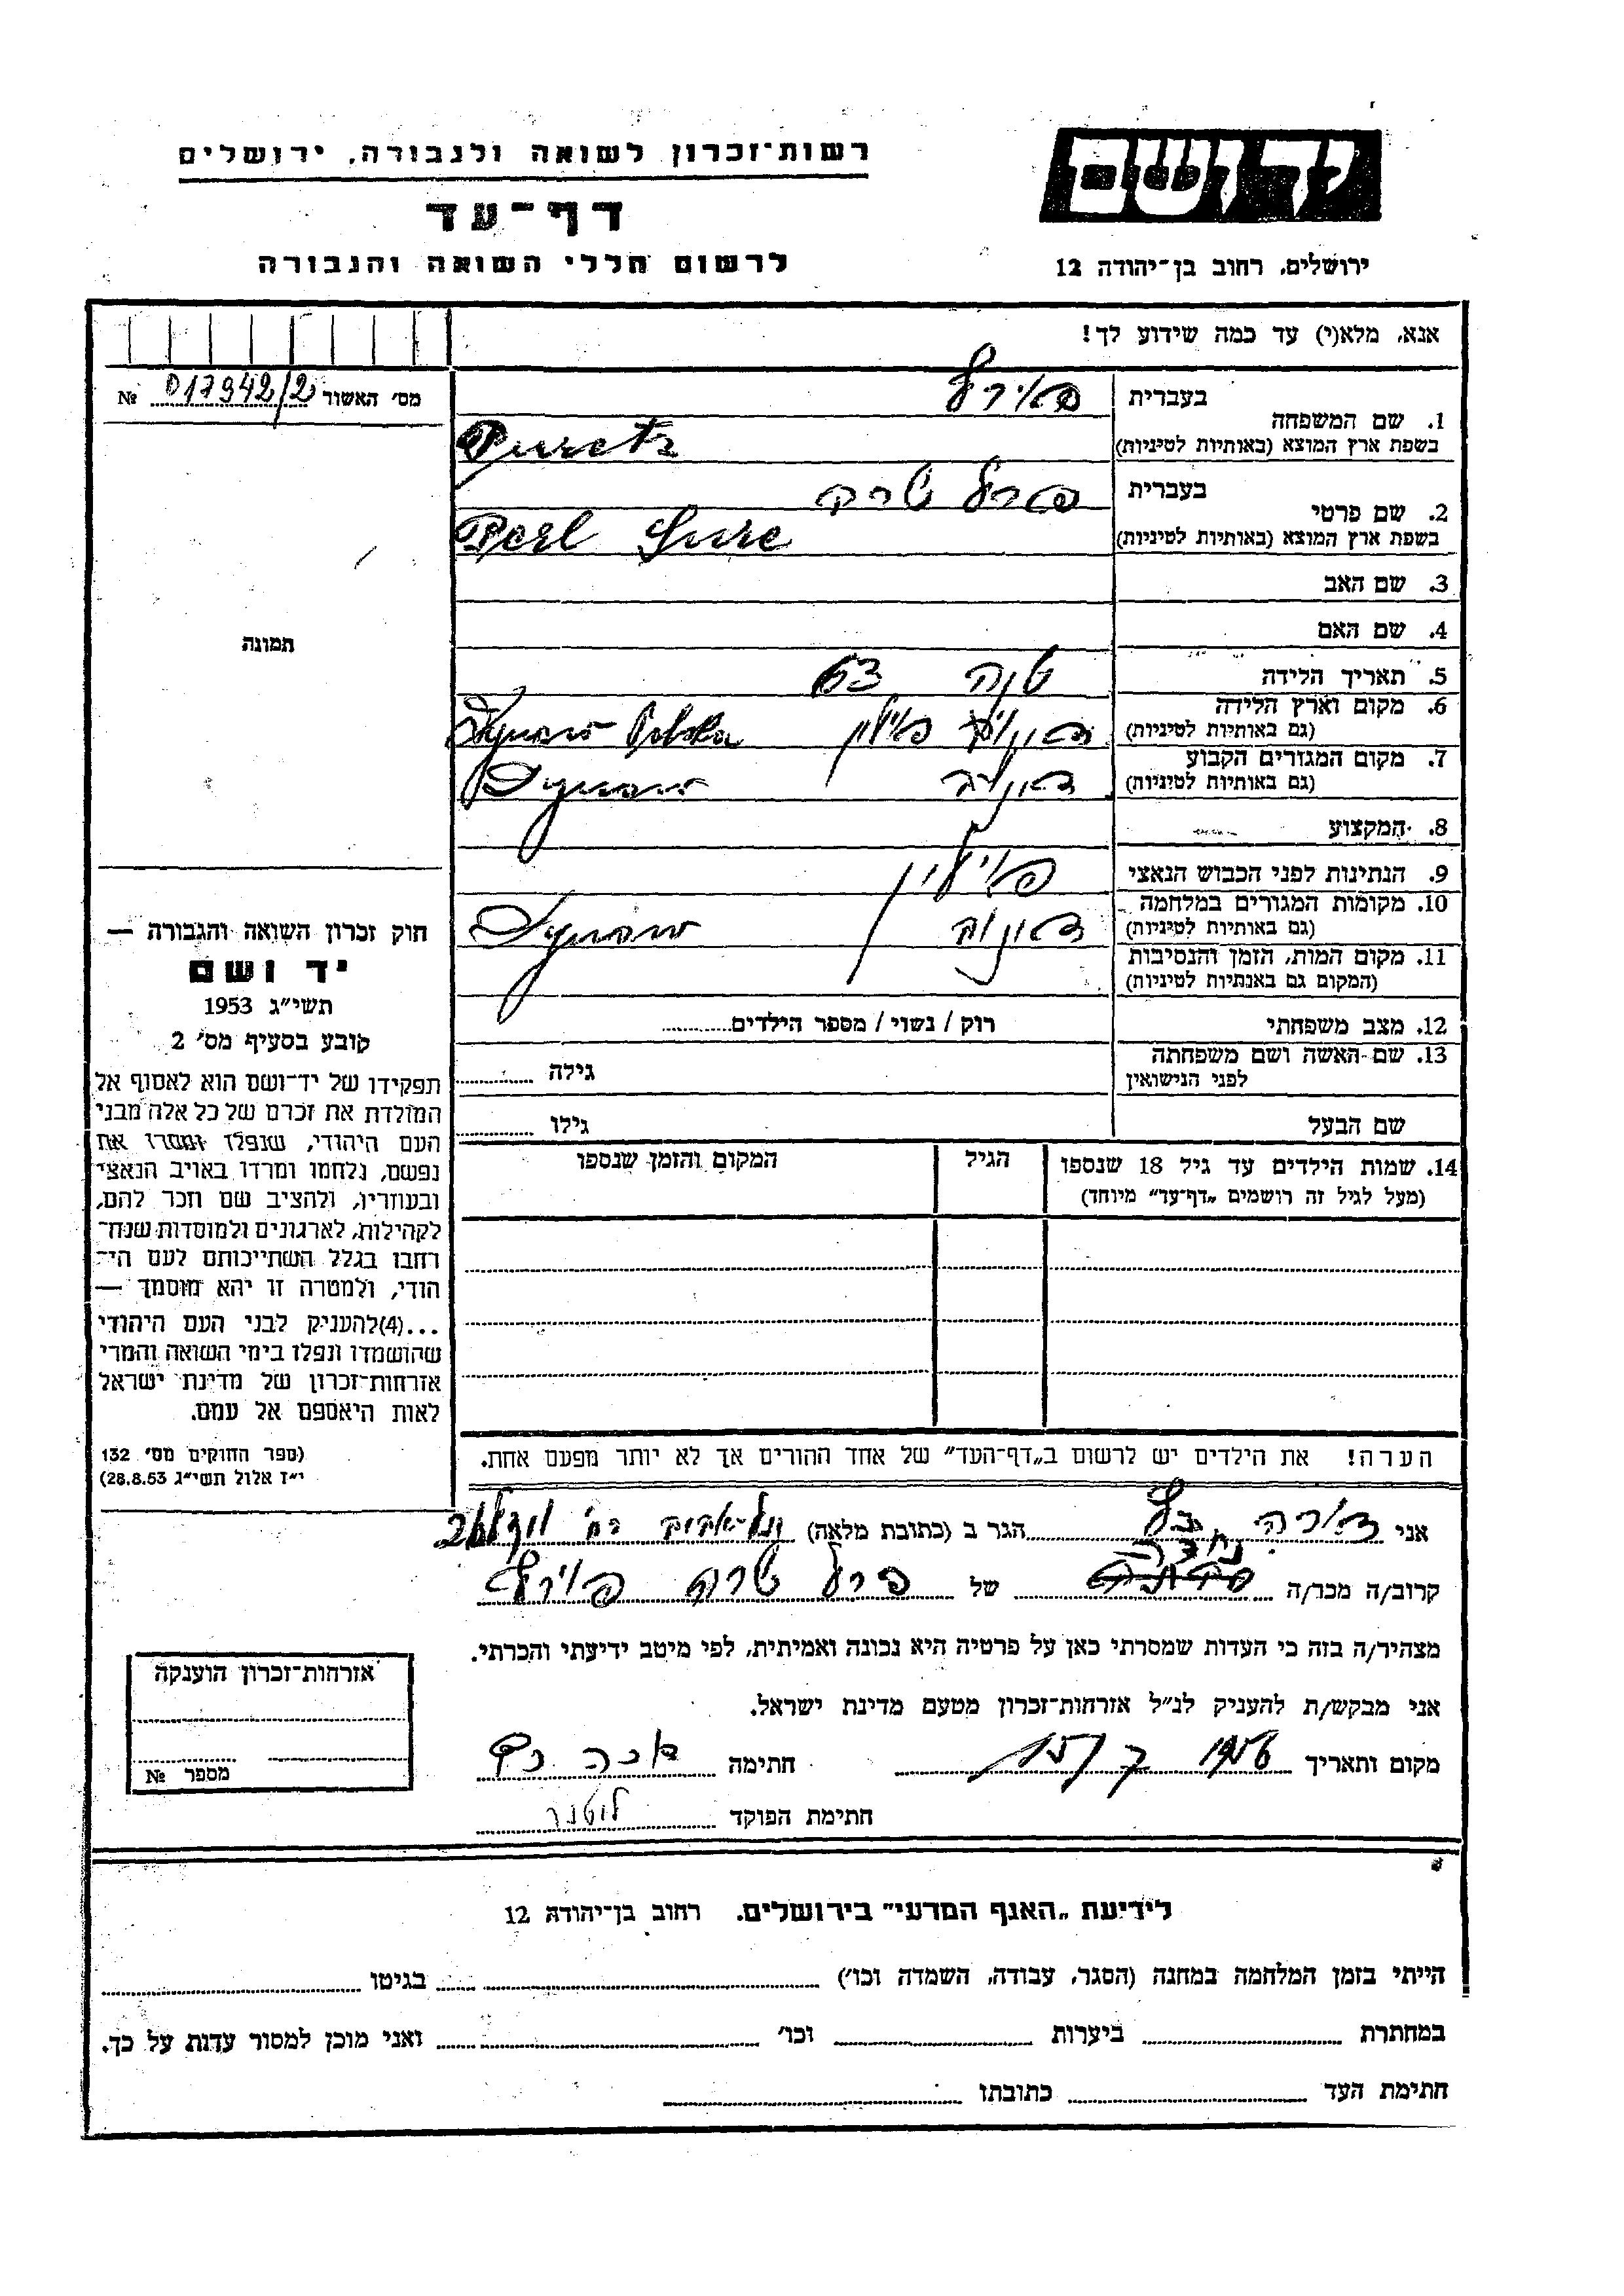 יד ושם
רשות־זכרון לשואה ולגבורה, ירושלים
דף־עד
לרשום חללי השואה והגבורה
ירושלים, רחוב בן־יהודה 12
אנא, מלא(י) עד כמה שידוע לך!
מס׳ האשור 017942/2 №
תמונה
1. שם המשפחה
בעברית
בשפת ארץ המוצא (באותיות לטיניות) Puretz
2. שם פרטי
בעברית פרל שרה
בשפת ארץ המוצא (באותיות לטיניות) Perl Sure
3. שם האב
4. שם האם
5. תאריך הלידה 63
6. מקום וארץ הלידה
(גם באותיות לטיניות) דינוב פוילין Dynow Polska
7. מקום המגורים הקבוע
(גם באותיות לטיניות) דינוב Dynow
8. המקצוע
9. הנתינות לפני הכבוש הנאצי פוילין
10. מקומות המגורים במלחמה
(גם באותיות לטיניות) דינוב Dynow
11. מקום המות, הזמן והנסיבות
(המקום גם באותיות לטיניות)
12. מצב משפחתי רוק / נשוי / מספר הילדים
13. שם האשה ושם משפחתה
לפני הנישואין גילה
שם הבעל גילו
14. שמות הילדים עד גיל 18 שנספו הגיל המקום והזמן שנספו
(מעל לגיל זה רושמים „דף־עד” מיוחד)
הערה! את הילדים יש לרשום ב„דף־העד” של אחד ההורים אך לא יותר מפעם אחת.
חוק זכרון השואה והגבורה —
יד ושם
תשי״ג 1953
קובע בסעיף מס׳ 2
תפקידו של יד־ושם הוא לאסוף אל
המולדת את זכרם של כל אלה מבני
העם היהודי, שנפלו ומסרו את
נפשם, נלחמו ומרדו באויב הנאצי
ובעוזריו, ולהציב שם וזכר להם,
לקהילות, לארגונים ולמוסדות שנח־
רבו בגלל השתייכותם לעם הי־
הודי, ולמטרה זו יהא מוסמך —
...(4)להעניק לבני העם היהודי
שהושמדו ונפלו בימי השואה והמרי
אזרחות־זכרון של מדינת ישראל
לאות היאספם אל עמם.
(ספר החוקים מס׳ 132
י״ז אלול תשי״ג 28.8.53)
אני הגר ב (כתובת מלאה) תל־אביב רח׳
קרוב/ה מכר/ה נכדה של פרל שרה
מצהיר/ה בזה כי העדות שמסרתי כאן על פרטיה היא נכונה ואמיתית, לפי מיטב ידיעתי והכרתי.
אני מבקש/ת להעניק לנ״ל אזרחות־זכרון מטעם מדינת ישראל.
מקום ותאריך 1956 חתימה
חתימת הפוקד
אזרחות־זכרון הוענקה
מספר №
לידיעת „האגף המדעי” בירושלים. רחוב בן־יהודה 12
הייתי בזמן המלחמה במחנה (הסגר, עבודה, השמדה וכו׳) בגיטו
במחתרת ביערות וכו׳ ואני מוכן למסור עדות על כך.
חתימת העד כתובתו